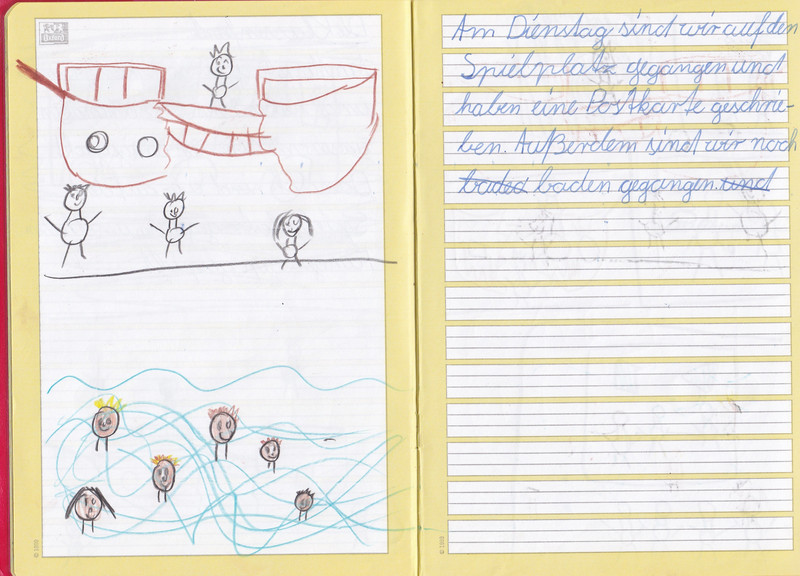 Am Dienstag sind wir auf den
Spielplatz gegangen und
haben eine Postkarte geschrie-
ben. Außerdem sind wir noch
baded baden gegangen. und